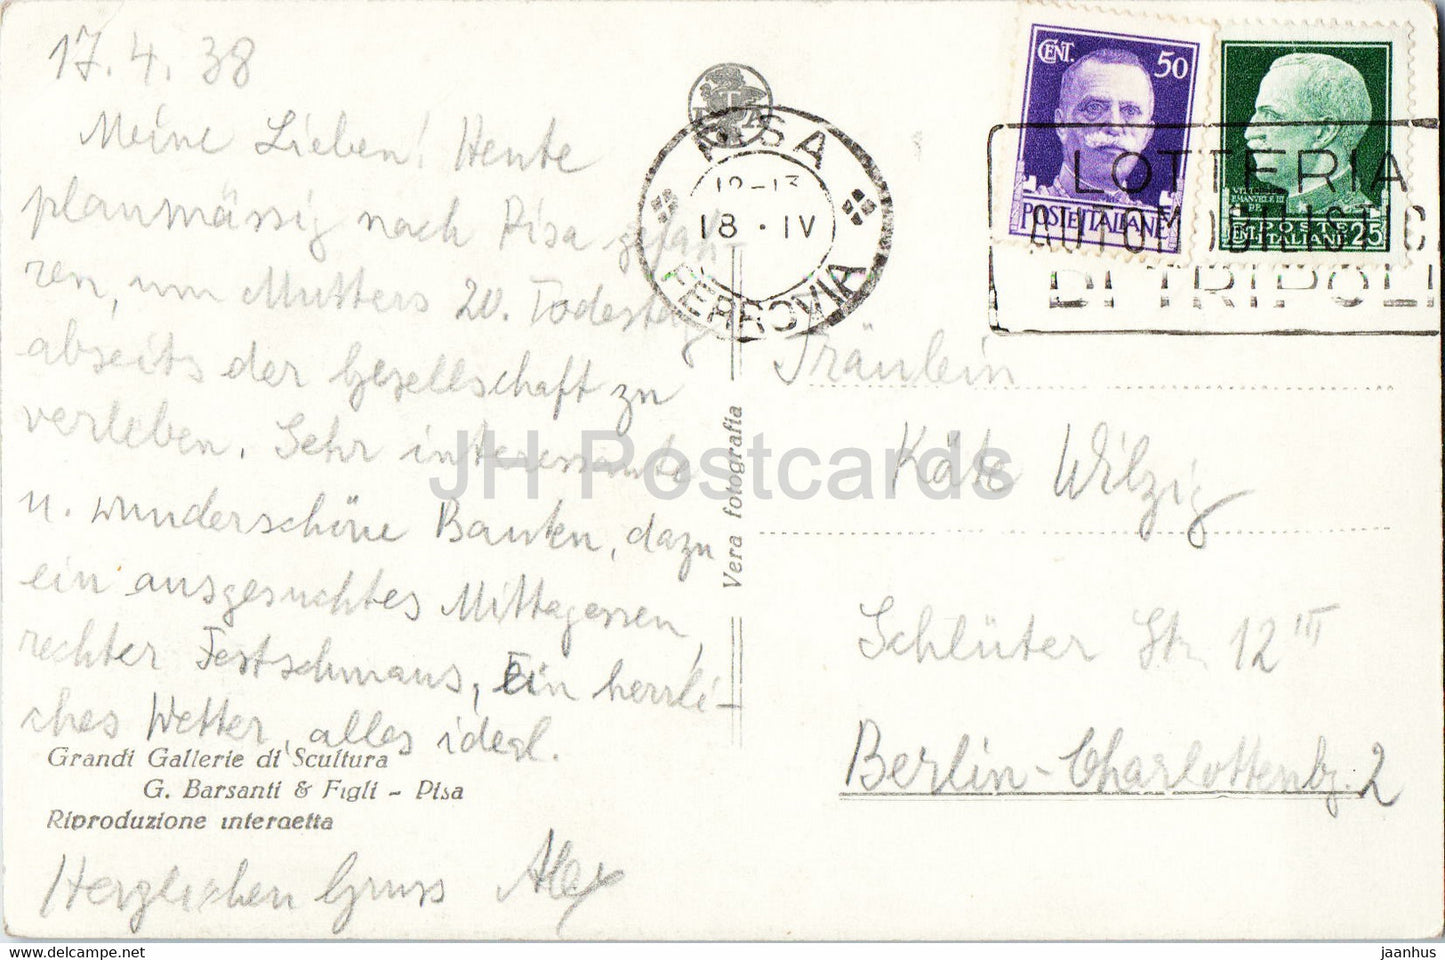 17.4.38
Meine Lieben! Heute
planmässig nach Pisa gefah-
ren, um Mutters 20. Todestag
abseits der Gesellschaft zu
verleben. Sehr interessante
u. wunderschöne Bauten, dazu
ein ausgesuchtes Mittagessen,
rechter Festschmaus, Ein herrli-
ches Wetter, alles ideal.
Grandi Gallerie di Scultura
G. Barsanti & Figli - Pisa
Riproduzione interdetta
Herzlichen Gruss Alex
Vera fotografia
PISA
12-13
18 · IV
FERROVIA
CENT. 50
POSTE ITALIANE
VITT. EMANUELE III
POSTE ITALIANE 25
LOTTERIA
AUTOMOBILISTIC
DI TRIPOLI
Fräulein
Käte Wilzig
Schlüter Str. 12 III
Berlin-Charlottenbg. 2
JH Postcards
www.jhpostcard.com
jaanhus